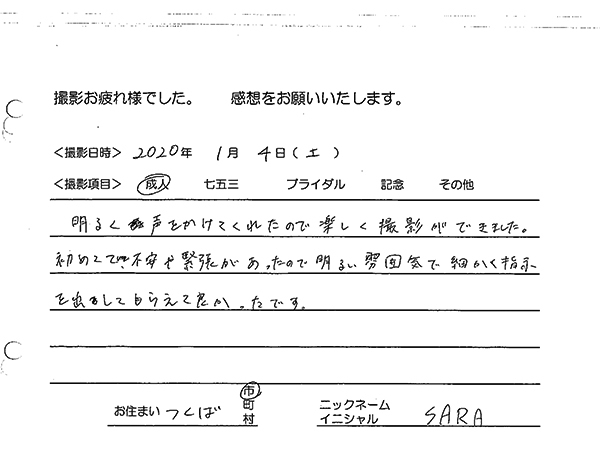 撮影お疲れ様でした。　感想をお願いいたします。
<撮影日時> 2020年 1月 4日(土)
<撮影項目> 成人 七五三 ブライダル 記念 その他
明るく声をかけてくれたので楽しく撮影ができました。
初めてで不安や緊張があったので明るい雰囲気で細かく指示
を出してもらえて良かったです。
お住まい つくば 市 町 村 ニックネーム イニシャル SARA